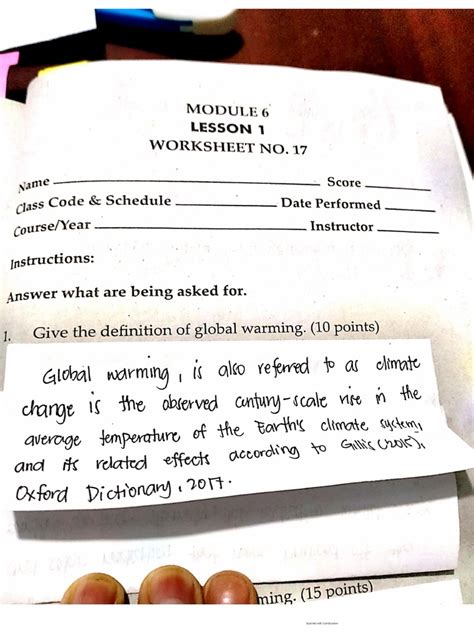 MODULE 6
LESSON 1
WORKSHEET NO. 17
Name Score
Class Code & Schedule Date Performed
Course/Year Instructor
Instructions:
Answer what are being asked for.
1. Give the definition of global warming. (10 points)
Global warming, is also referred to as climate
change is the observed century-scale rise in the
average temperature of the Earth's climate system,
and its related effects according to Gillis (2015),
Oxford Dictionary, 2017.
ming. (15 points)